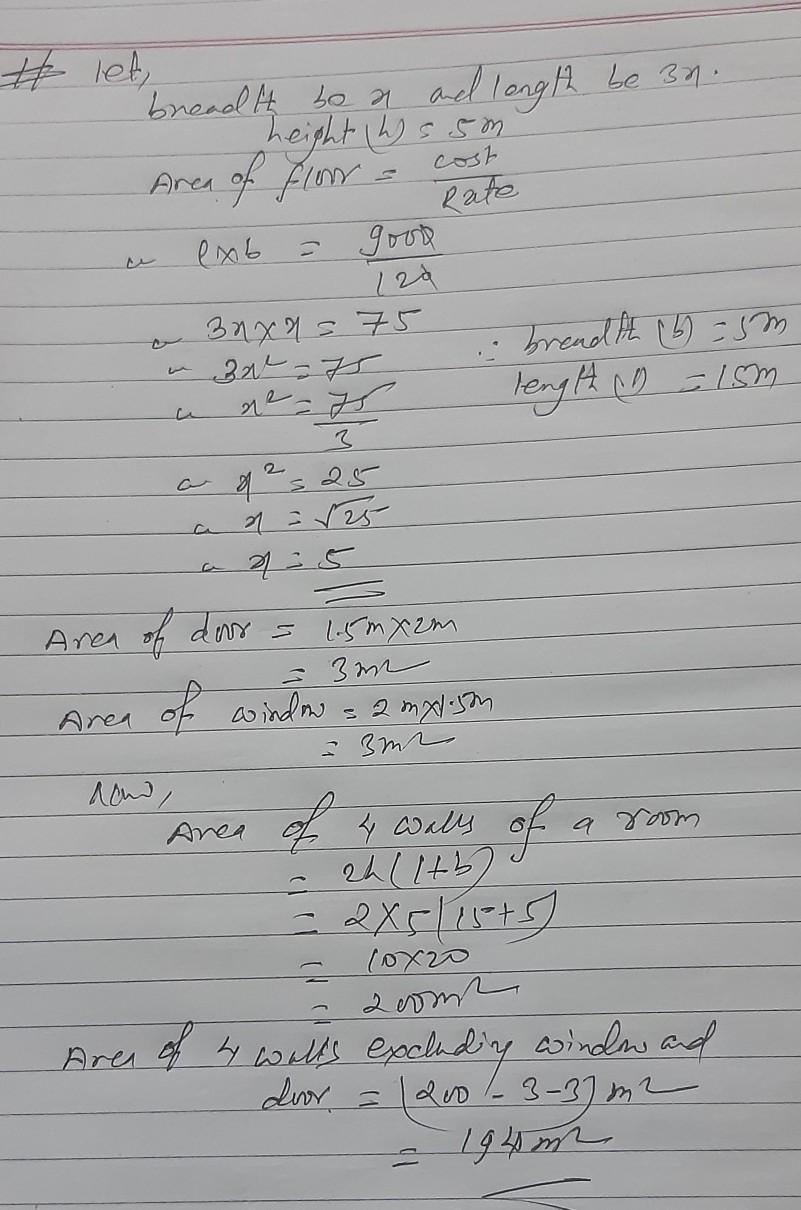 # let,
breadth be x and length be 3x.
height (h) = 5m
Area of floor = cost / Rate
or l×b = 9000 / 120
or 3x × x = 75
or 3x² = 75
or x² = 75 / 3
or x² = 25
or x = √25
or x = 5
∴ breadth (b) = 5m
length (l) = 15m
Area of door = 1.5m×2m
= 3m²
Area of window = 2m×1.5m
= 3m²
Now,
Area of 4 walls of a room
= 2h(l+b)
= 2×5(15+5)
= 10×20
= 200m²
Area of 4 walls excluding window and
door. = (200 - 3-3) m²
= 194m²